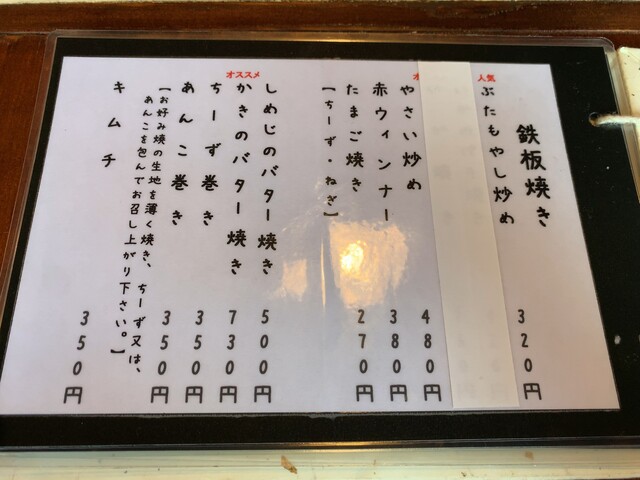 鉄板焼き
人気
ぶたもやし炒め 320円
やさい炒め 480円
赤ウィンナー 380円
たまご焼き 270円
【ちーず・ねぎ】
しめじのバター焼き 500円
オススメ
かきのバター焼き 730円
ちーず巻き 350円
あんこ巻き 350円
【お好み焼の生地を薄く焼き、ちーず又は、
あんこを包んでお召し上がり下さい。】
キムチ 350円